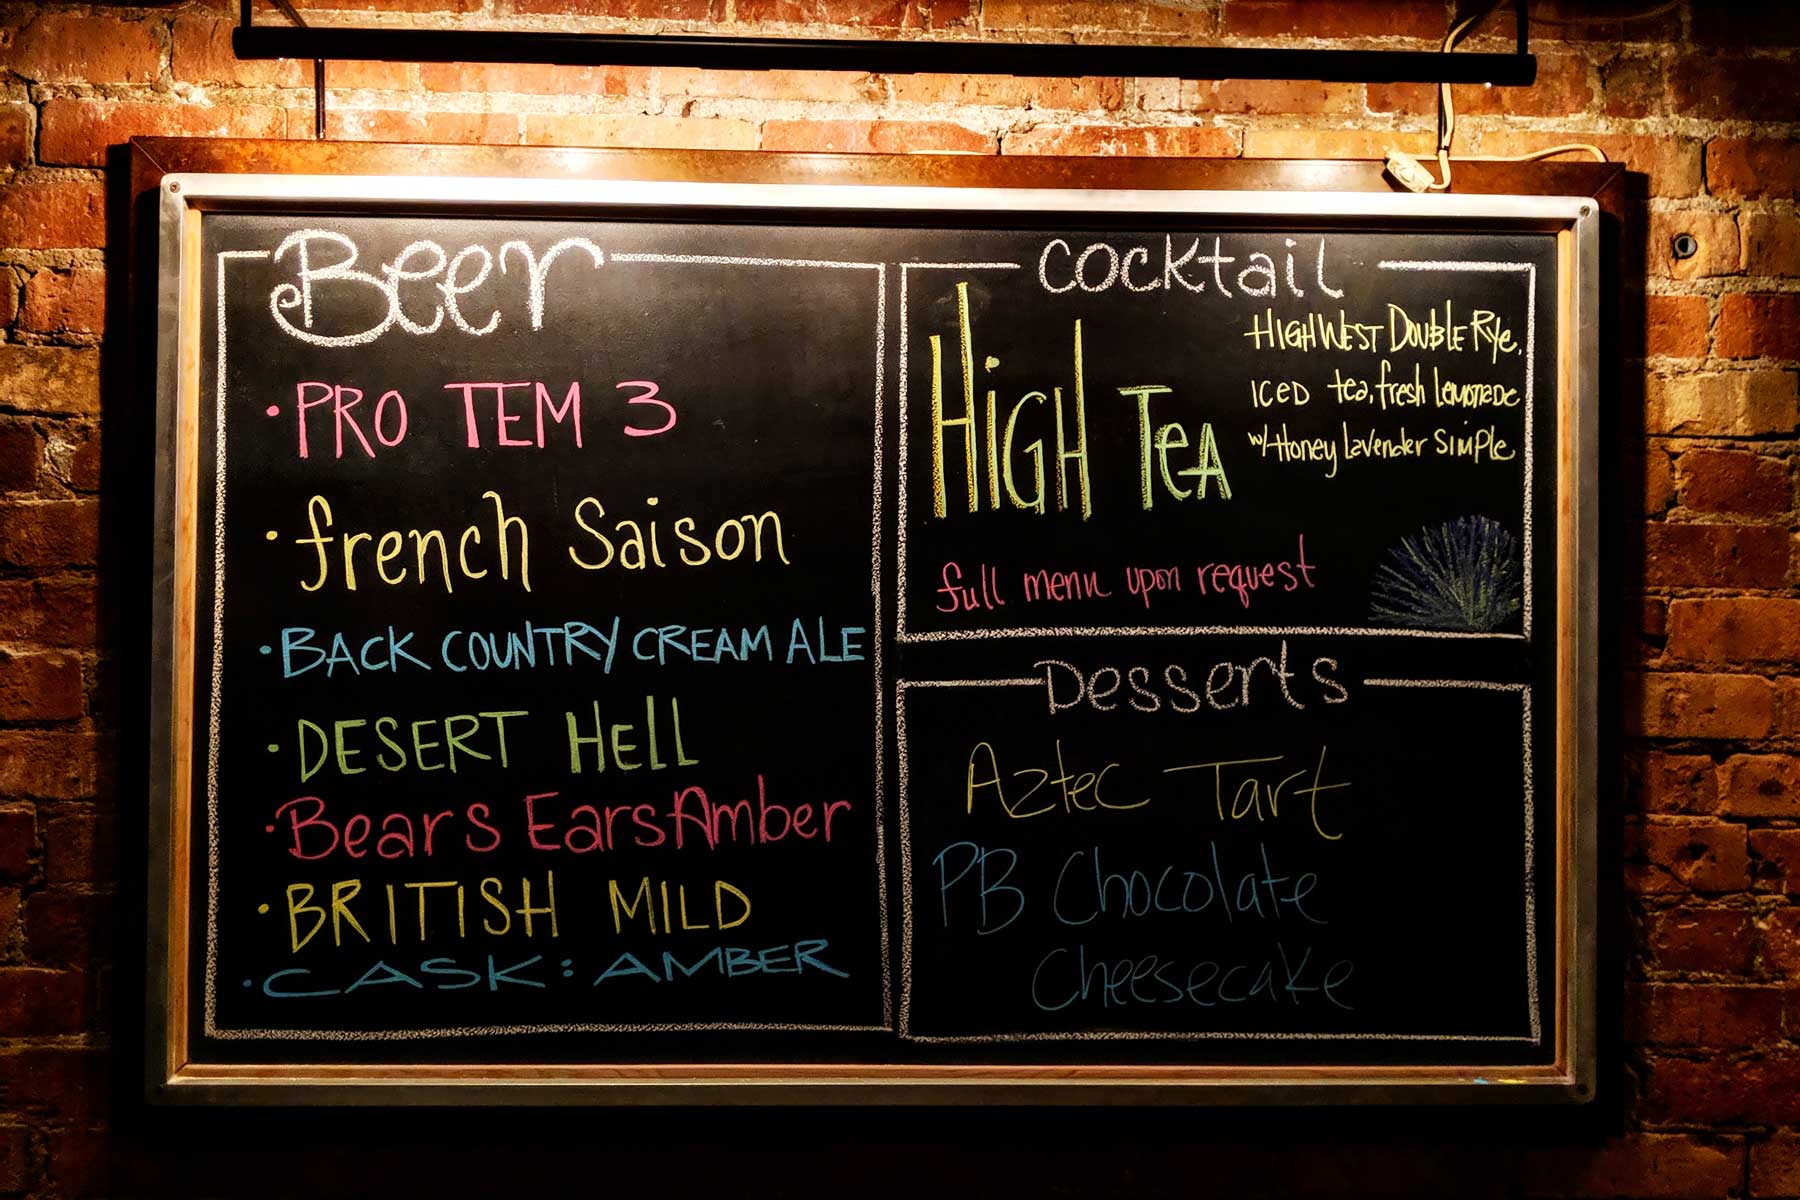 Beer
· PRO TEM 3
· french Saison
· BACK COUNTRY CREAM ALE
· DESERT HELL
· Bears Ears Amber
· BRITISH MILD
· CASK: AMBER
Cocktail
HiGH TeA
HIGH WEST DOUBLE Rye,
ICED tea, fresh Lemonade
w/ Honey Lavender Simple
full menu upon request
Desserts
Aztec Tart
PB Chocolate
Cheesecake